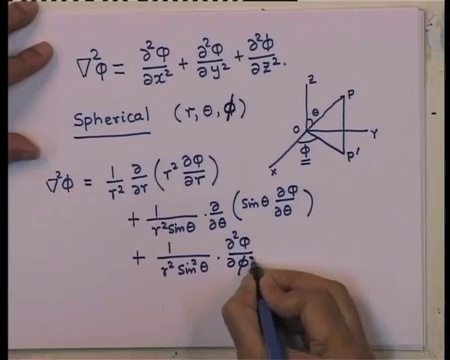 ∇²φ = ∂²φ/∂x² + ∂²φ/∂y² + ∂²φ/∂z².
Spherical (r, θ, ϕ)
Z
P
θ
O
Y
ϕ
P'
X
∇²φ = 1/r² ∂/∂r (r² ∂φ/∂r)
+ 1/r² sinθ · ∂/∂θ (sinθ ∂φ/∂θ)
+ 1/r² sin²θ · ∂²φ/∂ϕ²